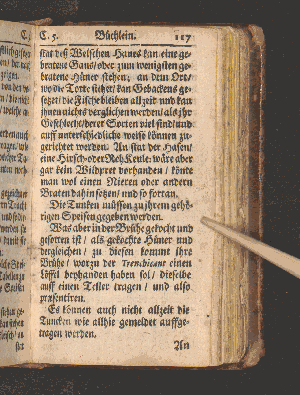 C. 5. Büchlein. 117
stat deß Welschen Hanes kan eine ge-
bratene Gans/ oder zum wenigsten ge-
bratene Hüner stehen; an dem Ort/
wo die Torte stehet/ kan Gebackens ge-
setzt/ die Fische bleiben allzeit und kan
ihnen nichts verglichen werden/ als ihr
Geschlecht/ derer Sorten viel sind/ und
auff unterschiedliche weiß können zu-
gerichtet werden. An stat der Hasen/
eine Hirsch- oder Reh-Keule: wäre aber
gar kein Wildpret vorhanden / könte
man wol einen Nieren oder andern
Braten dahin setzen/ und so fortan.
Die Tuncken müssen zu ihrem gehö-
rigen Speisen gegeben werden.
Was aber in der Brühe gekocht und
gesotten ist / als gekochte Hüner und
dergleichen / zu diesen kommt ihre
Brühe / worzu der Trenchicant einen
Löffel beyhanden haben sol / dieselbe
auff einen Teller tragen / und also
præsentiren.
Es können auch nicht allzeit die
Tuncken wie allhie gemeldet auffge-
tragen werden.
An